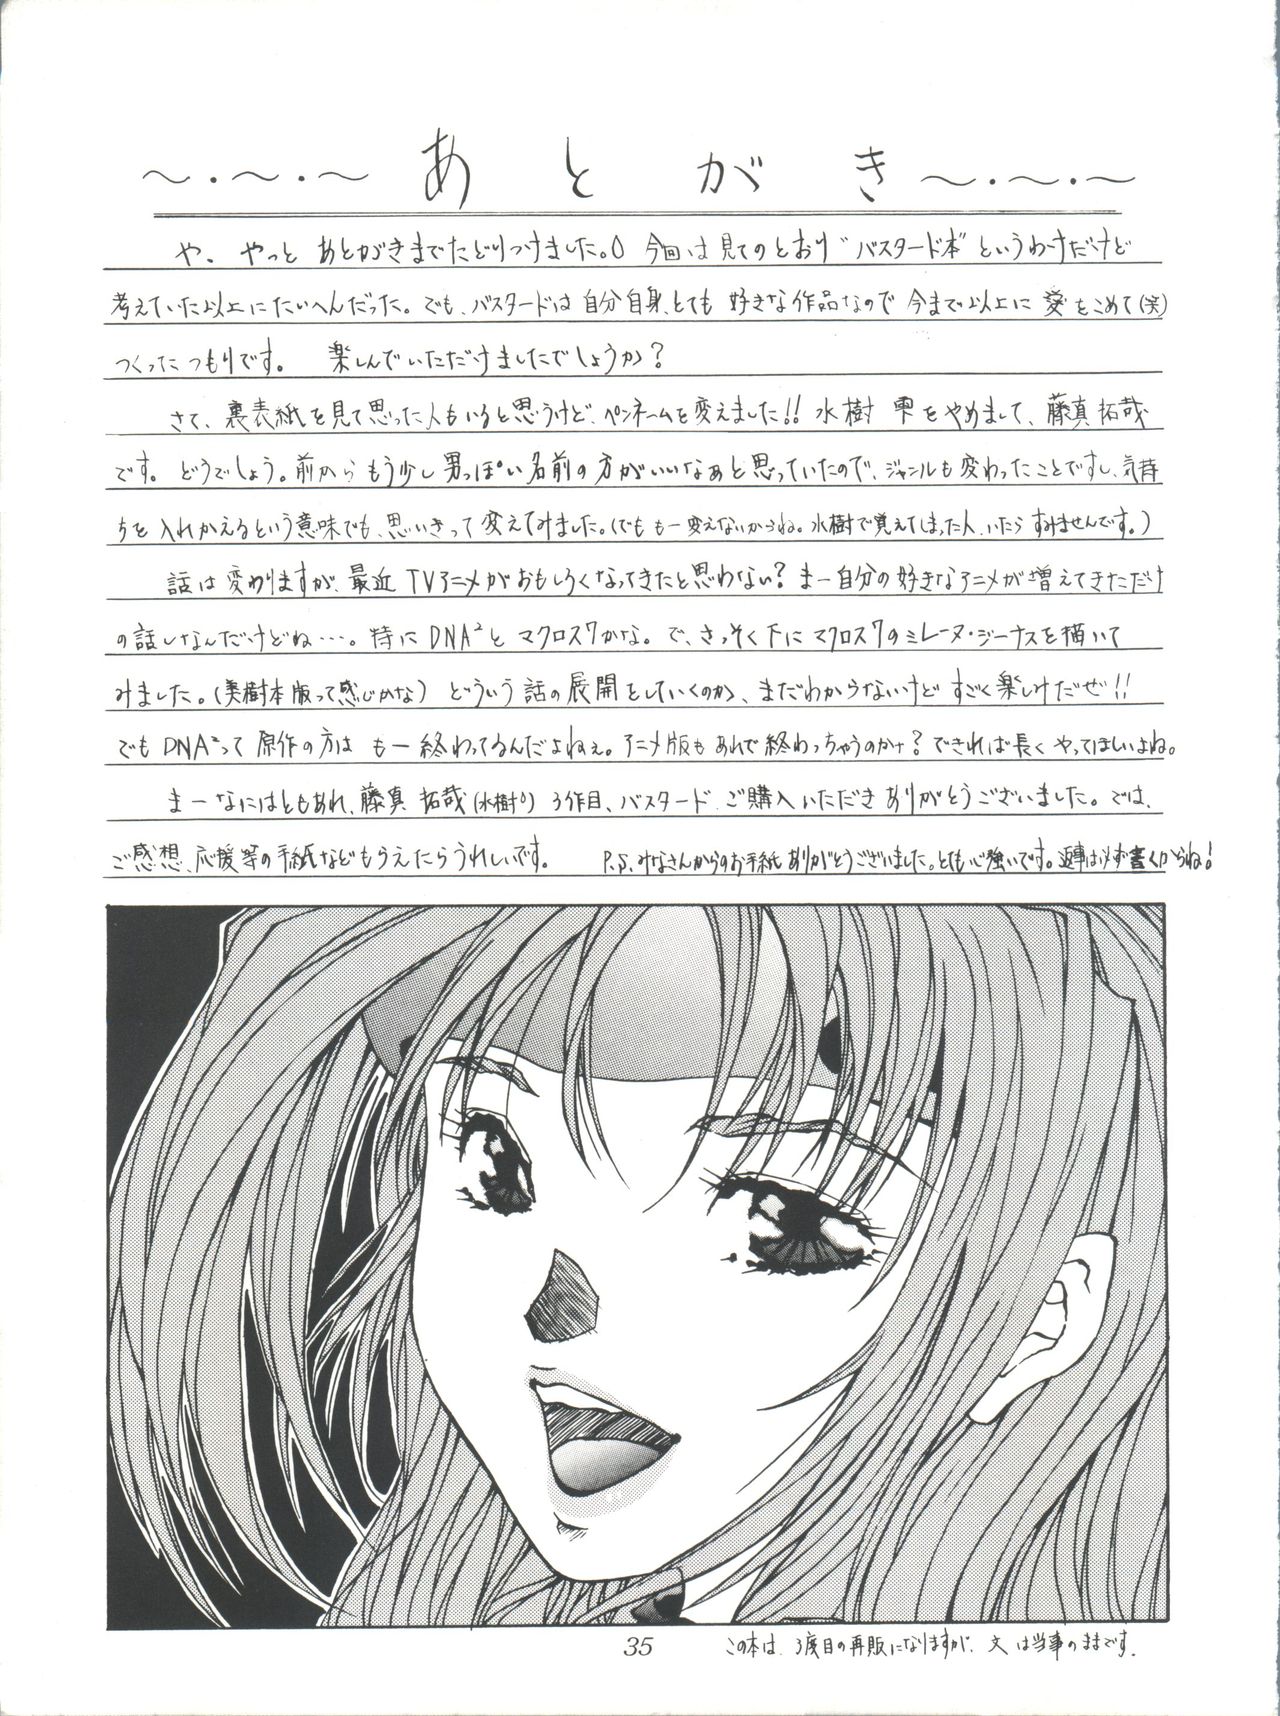 ～・～・～ あとがき ～・～・～
や、やっと あとがきまでたどりつけました。 今回は見てのとおり“バスタード本”というわけだけど
考えていた以上にたいへんだった。でも、バスタードは自分自身、とても 好きな作品なので 今まで以上に 愛をこめて(笑)
つくったつもりです。 楽しんでいただけましたでしょうか？
さて、裏表紙を見て思った人もいると思うけど、ペンネームを変えました!! 水樹 雫をやめまして、藤真拓哉
です。どうでしょう。前から もう少し男っぽい名前の方がいいなぁと思っていたので、ジャンルも変わったことですし、気持
ちを入れかえるという意味でも、思いきって変えてみました。(でももー変えないからね。水樹で覚えてしまった人、いたら すみませんです。)
話は変わりますが、最近 TVアニメがおもしろくなってきたと思わない？まー自分の好きなアニメが増えてきただけ
の話しなんだけどね…。特にDNA²とマクロス7かな。で、さっそく下にマクロス7のミレーヌ・ジーナスを描いて
みました。(美樹本版って感じかな) どういう話の展開をしていくのか、まだわからないけど すごく楽しみだぜ!!
でもDNA²って 原作の方は もー終わってるんだよねぇ。アニメ版もあれで終わっちゃうのかナ？できれば長くやってほしいよね。
まーなにはともあれ、藤真 拓哉(水樹) 3作目、バスタード ご購入いただき ありがとうございました。では、
ご感想、応援等の手紙などもらえたらうれしいです。 P.S.みなさんからのお手紙ありがとうございました。とても心強いです。返事は必ず書くからね！
35 この本は、3度目の再販になりますが、文は当事のままです。